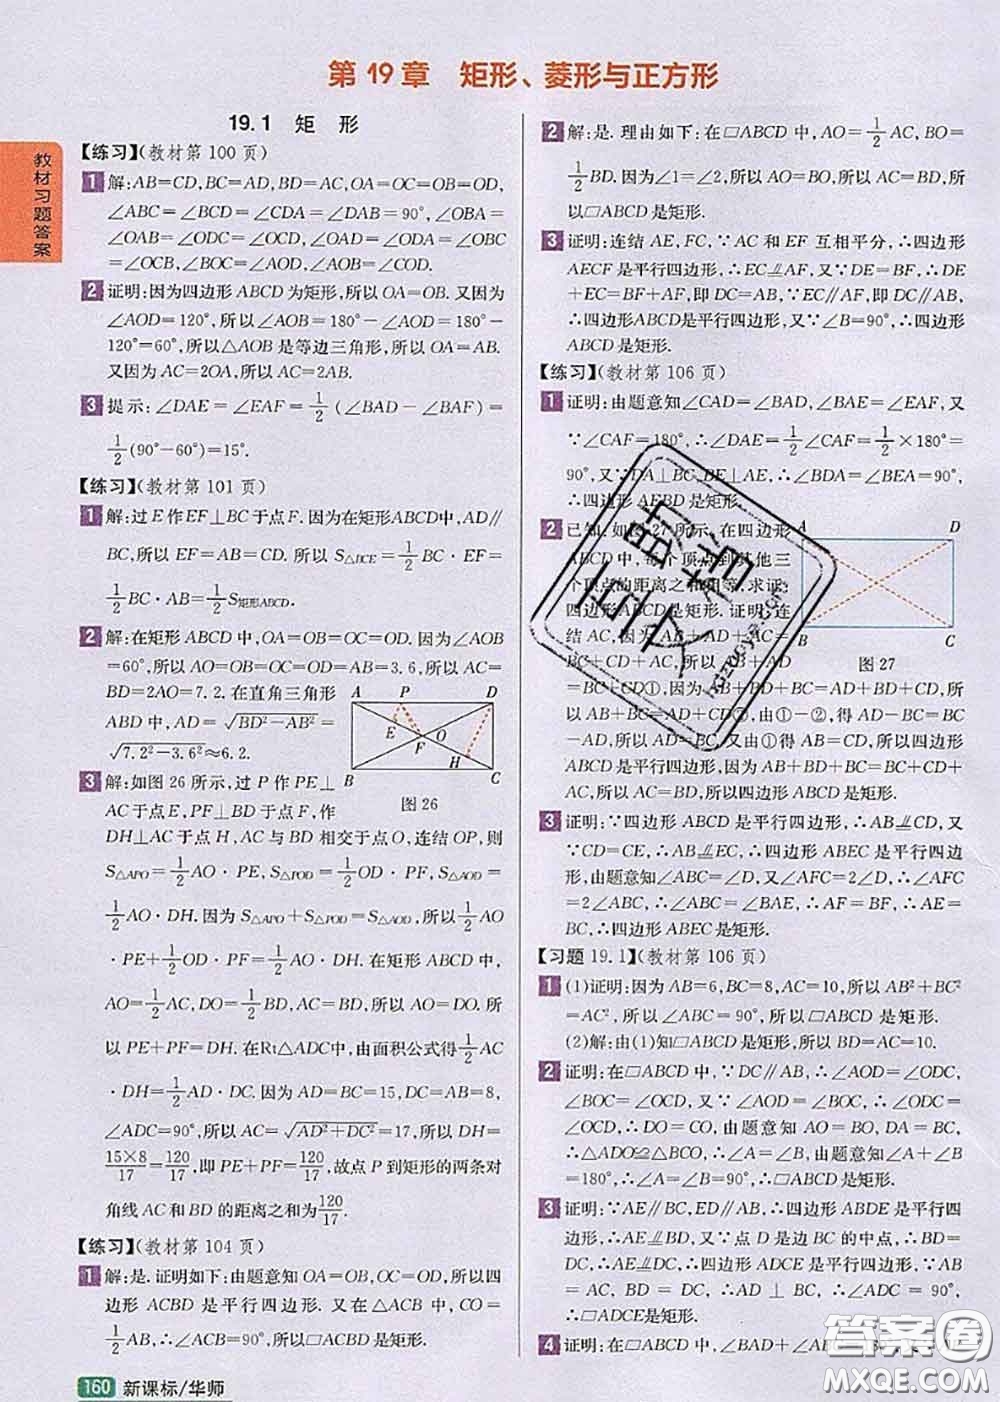 第19章 矩形、菱形与正方形
教材习题答案
19.1 矩 形
【练习】(教材第100页)
1 解:AB=CD,BC=AD,BD=AC,OA=OC=OB=OD,
∠ABC=∠BCD=∠CDA=∠DAB=90°,∠OBA=
∠OAB=∠ODC=∠OCD,∠OAD=∠ODA=∠OBC
=∠OCB,∠BOC=∠AOD,∠AOB=∠COD.
2 证明:因为四边形ABCD为矩形,所以OA=OB.又因为
∠AOD=120°,所以∠AOB=180°-∠AOD=180°-
120°=60°,所以△AOB是等边三角形,所以OA=AB.
又因为AC=2OA,所以AC=2AB.
3 提示:∠DAE=∠EAF=1/2(∠BAD-∠BAF)=
1/2(90°-60°)=15°.
【练习】(教材第101页)
1 解:过E作EF⊥BC于点F.因为在矩形ABCD中,AD∥
BC,所以EF=AB=CD.所以S△BCE=1/2BC·EF=
1/2BC·AB=1/2S矩形ABCD.
2 解:在矩形ABCD中,OA=OB=OC=OD.因为∠AOB
=60°,所以AO=OB=OC=OD=AB=3.6,所以AC=
BD=2AO=7.2.在直角三角形
ABD中,AD=√(BD²-AB²)=
√(7.2²-3.6²)≈6.2.
3 解:如图26所示,过P作PE⊥
AC于点E,PF⊥BD于点F,作
A P D
E F O H
B C
图26
DH⊥AC于点H,AC与BD相交于点O,连结OP,则
S△APO=1/2AO·PE,S△POD=1/2OD·PF,S△AOD=
1/2AO·DH.因为S△APO+S△POD=S△AOD,所以1/2AO
·PE+1/2OD·PF=1/2AO·DH.在矩形ABCD中,
AO=1/2AC,DO=1/2BD,AC=BD,所以AO=DO.所
以PE+PF=DH.在Rt△ADC中,由面积公式得1/2AC
·DH=1/2AD·DC.因为AD=BC=15,DC=AB=8,
∠ADC=90°,所以AC=√(AD²+DC²)=17,所以DH=
15×8/17=120/17,即PE+PF=120/17,故点P到矩形的两条对
角线AC和BD的距离之和为120/17.
【练习】(教材第104页)
1 解:是.证明如下:由题意知OA=OB,OC=OD,所以四
边形ACBD是平行四边形.又在△ACB中,CO=
1/2AB,∴∠ACB=90°,所以□ACBD是矩形.
160 新课标/华师
2 解:是.理由如下:在□ABCD中,AO=1/2AC,BO=
1/2BD.因为∠1=∠2,所以AO=BO,所以AC=BD,所
以□ABCD是矩形.
3 证明:连结AE,FC,∵AC和EF互相平分,∴四边形
AECF是平行四边形,∴EC⫽AF,又∵DE=BF,∴DE
+EC=BF+AF,即DC=AB,∵EC∥AF,即DC∥AB,
∴四边形ABCD是平行四边形,又∵∠B=90°,∴四边形
ABCD是矩形.
【练习】(教材第106页)
1 证明:由题意知∠CAD=∠BAD,∠BAE=∠EAF,又
∵∠CAF=180°,∴∠DAE=1/2∠CAF=1/2×180°=
90°,又∵DA⊥BC,BE⊥AE,∴∠BDA=∠BEA=90°,
∴四边形AEBD是矩形.
2 已知:如图27所示,在四边形
ABCD中,每个顶点到其他三
个顶点的距离之和相等.求证:四
边形ABCD是矩形.证明:连
结AC,因为AB+AC+AD=
A D
B C
图27
+AC+CD①,因为AB+BD+AD=BD+BC+CD,所
以AB+AC+AD=AB+AC+CD②,由①-②,得AC-BD=BC
-AD,所以AC=BD.又由①得AC=BD,所以四边形
ABCD是平行四边形,因为AB+BD+BC=BC+CD+
AC,所以BD=AC,所以四边形ABCD是矩形.
3 证明:∵四边形ABCD是平行四边形,∴AB⫽CD,又
∵CD=CE,∴AB⫽EC,∴四边形ABEC是平行四边
形,由题意知∠ABC=∠D,又∠AFC=2∠D,∴∠AFC
=2∠ABC,∴∠ABC=∠BAE,∴AF=BF,∴AE=
BC,∴四边形ABEC是矩形.
【习题19.1】(教材第106页)
1 (1)证明:因为AB=6,BC=8,AC=10,所以AB²+BC²
=AC²,所以∠ABC=90°,所以□ABCD是矩形.
(2)解:由(1)知□ABCD是矩形,所以BD=AC=10.
2 证明:在□ABCD中,∵DC∥AB,∴∠AOD=∠ODC,
∠BOC=∠OCD,又∵∠AOD=∠BOC,∴∠ODC=
∠OCD,∴DO=CO,由题意知AO=BO,DA=BC,
∴△ADO≌△BCO,∴∠A=∠B,由题意知∠A+∠B=
180°,∴∠A=∠B=90°,∴□ABCD是矩形.
3 证明:∵AE∥BC,ED∥AB,∴四边形ABDE是平行四
边形,∴AE⫽BD,又∵点D是边BC的中点,∴BD=
DC,∴AE⫽DC,∴四边形ADCE是平行四边形,∵AB
=AC,BD=DC,∴AD⊥BC,∴∠ADC=90°,
∴□ADCE是矩形.
4 证明:在□ABCD中,∠BAD+∠ABC=
答案圈
MXQE.COM